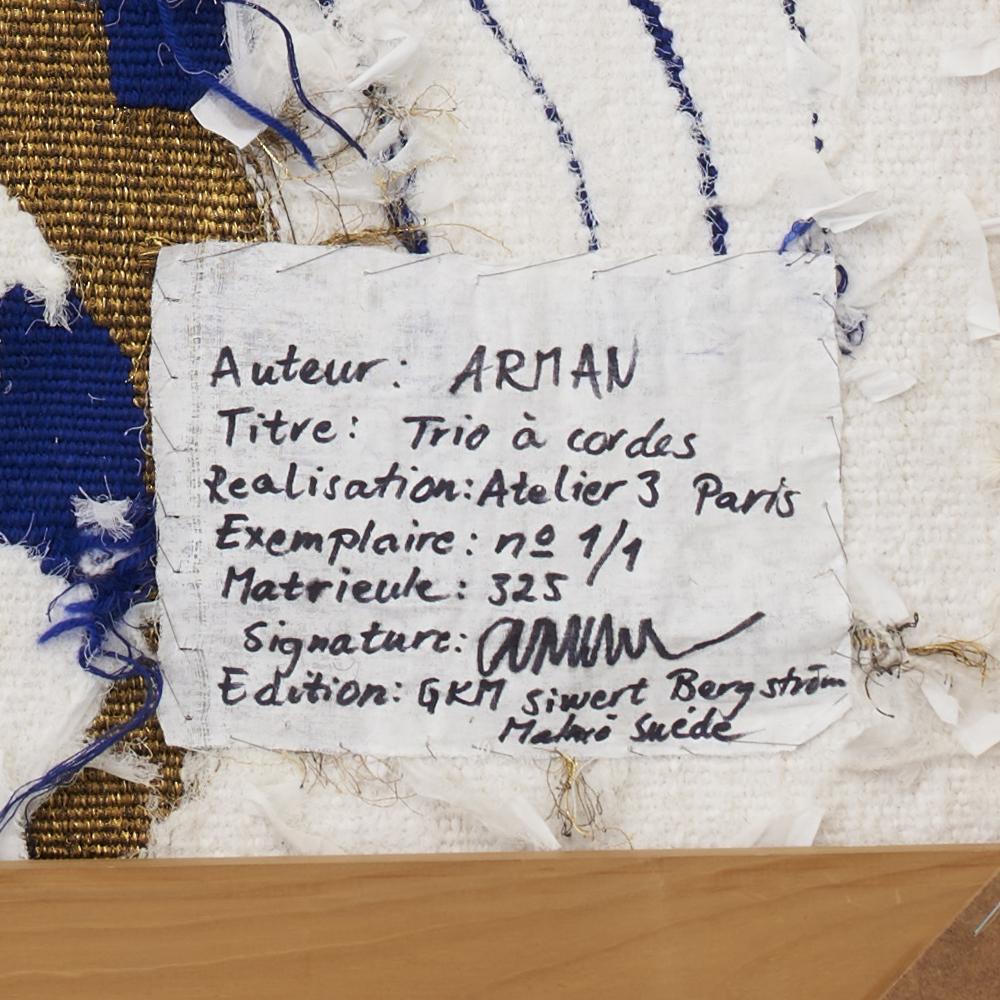 Auteur: ARMAN
Titre: Trio à cordes
Realisation: Atelier 3 Paris
Exemplaire: nº 1/1
Matrieule: 325
Signature: Arman
Edition: GKM Siwert Bergström
Malmö Suède